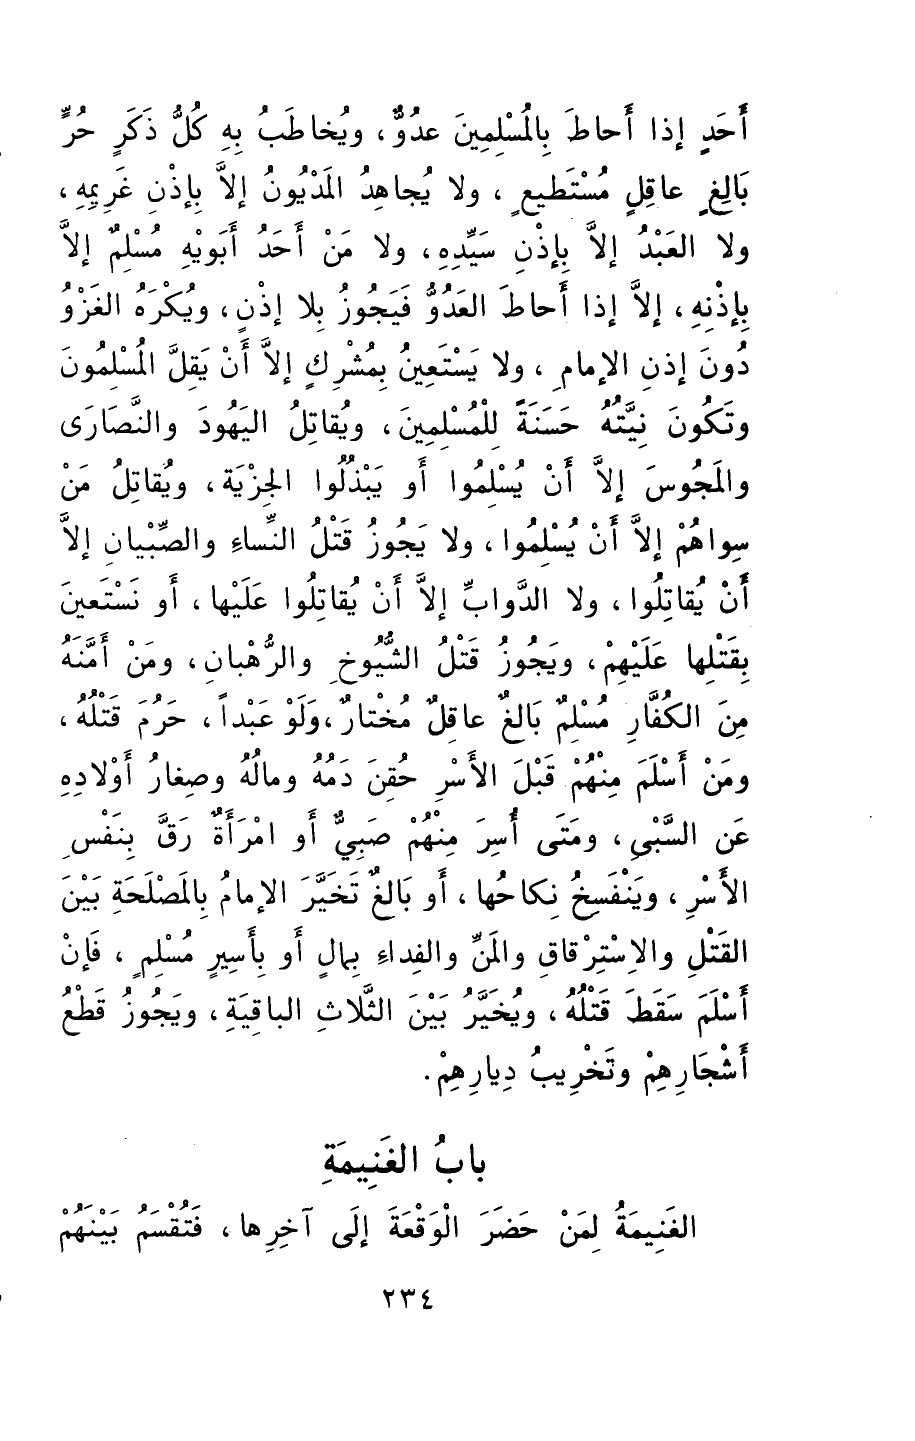 أَحَدٍ إذا أَحاطَ بِالمُسْلِمِينَ عدُوٌّ، ويُخاطَبُ بِهِ كُلُّ ذَكَرٍ حُرٍّ
بَالِغٍ عاقِلٍ مُسْتَطيعٍ، ولا يُجاهِدُ المَدْيُونُ إلاَّ بِإذْنِ غَرِيمِهِ،
ولا العَبْدُ إلاَّ بِإذْنِ سَيِّدِهِ، ولا مَنْ أَحَدُ أَبَويْهِ مُسْلِمٌ إلاَّ
بِإذْنِهِ، إلاَّ إذا أَحاطَ العَدُوُّ فَيَجُوزُ بِلا إذْنٍ، ويُكْرَهُ الغَزْوُ
دُونَ إذنِ الإمامِ، ولا يَسْتَعِينُ بِمُشْرِكٍ إلاَّ أَنْ يَقِلَّ المُسْلِمُونَ
وتَكُونَ نِيَّتُهُ حَسَنَةً لِلْمُسْلِمِينَ، ويُقاتِلُ اليَهُودَ والنَّصَارَى
والمَجُوسَ إلاَّ أَنْ يُسْلِمُوا أو يَبْذُلُوا الجِزْيَة، ويُقاتِلُ مَنْ
سِواهُمْ إلاَّ أَنْ يُسْلِمُوا، ولا يَجُوزُ قَتْلُ النِّساءِ والصِّبْيانِ إلاَّ
أَنْ يُقاتِلُوا، ولا الدَّوابِّ إلاَّ أَنْ يُقاتِلُوا عَلَيْها، أو نَسْتَعينَ
بِقَتْلِها عَلَيْهِمْ، ويَجُوزُ قَتْلُ الشُّيُوخِ والرُّهْبانِ، ومَنْ أَمَّنَهُ
مِنَ الكُفَّارِ مُسْلِمٌ بَالغٌ عاقِلٌ مُخْتارٌ، وَلَوْ عَبْداً، حَرُمَ قَتْلُهُ،
ومَنْ أَسْلَمَ مِنْهُمْ قَبْلَ الأَسْرِ حُقِنَ دَمُهُ ومالُهُ وصِغارُ أَوْلادِهِ
عَن السَّبْيِ، ومَتَى أُسِرَ مِنْهُمْ صَبِيٌّ أو امْرَأَةٌ رَقَّ بِنَفْسِ
الأَسْرِ، ويَنْفَسِخُ نِكاحُها، أو بَالغٌ تَخَيَّرَ الإمامُ بِالمَصْلَحَةِ بَيْنَ
القَتْلِ والاِسْتِرْقاقِ والمَنِّ والفِداءِ بِمالٍ أو بِأَسِيرٍ مُسْلِمٍ، فَإنْ
أَسْلَمَ سَقَطَ قَتْلُهُ، ويُخَيَّرُ بَيْنَ الثَّلاثِ الباقِيَةِ، ويَجُوزُ قَطْعُ
أَشْجَارِهِمْ وتَخْرِيبُ دِيارِهِمْ.
بابُ الغَنِيمَةِ
الغَنِيمَةُ لِمَنْ حَضَرَ الْوَقْعَةَ إلَى آخِرِها، فَتُقْسَمُ بَيْنَهُمْ
٢٣٤